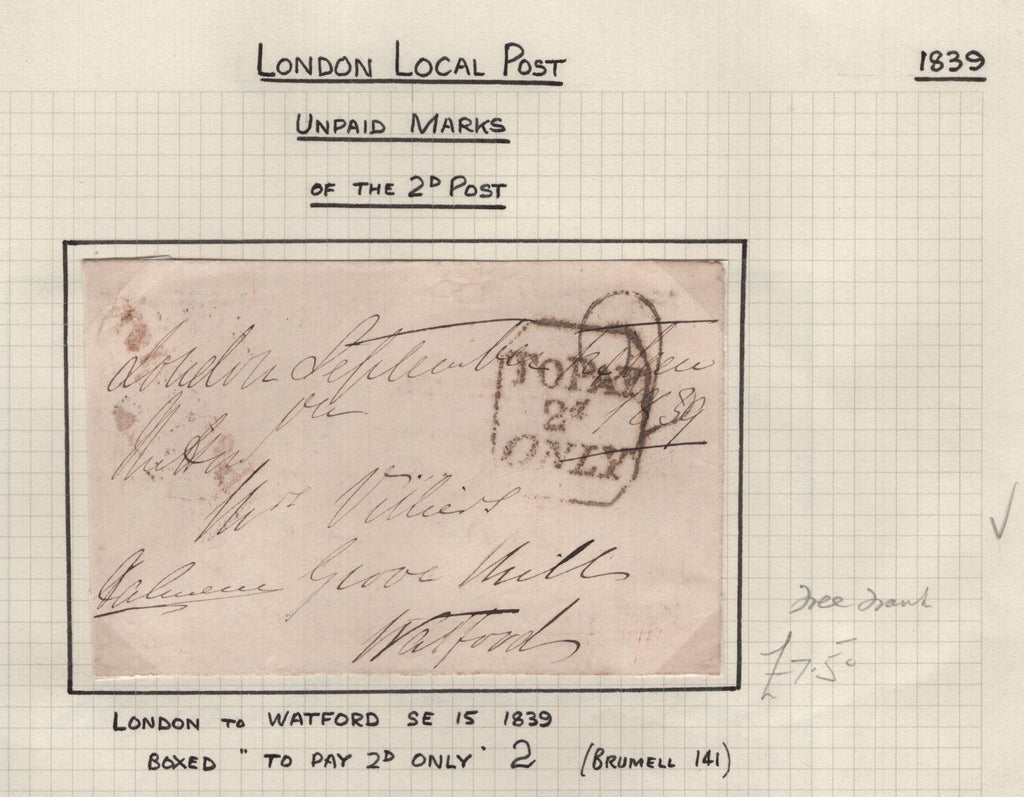 LONDON LOCAL POST
1839
UNPAID MARKS
OF THE 2D POST
London September
1839
TO PAY
2d
ONLY
Mrs Villiers
Grove Mill
Watford
free frank
£7.50
LONDON TO WATFORD SE 15 1839
BOXED "TO PAY 2D ONLY" 2 (BRUMELL 141)